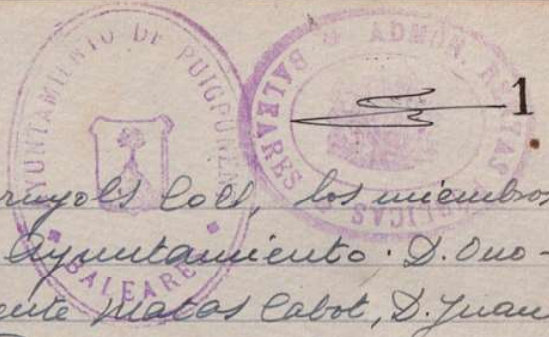 AYUNTAMIENTO DE PUIGPUÑENT
BALEARES
ADMON. RENTAS PUBLICAS
BALEARES
1
Coll, los miembros
Ayuntamiento. D. Ono-
Matas Cabot, D. Juan